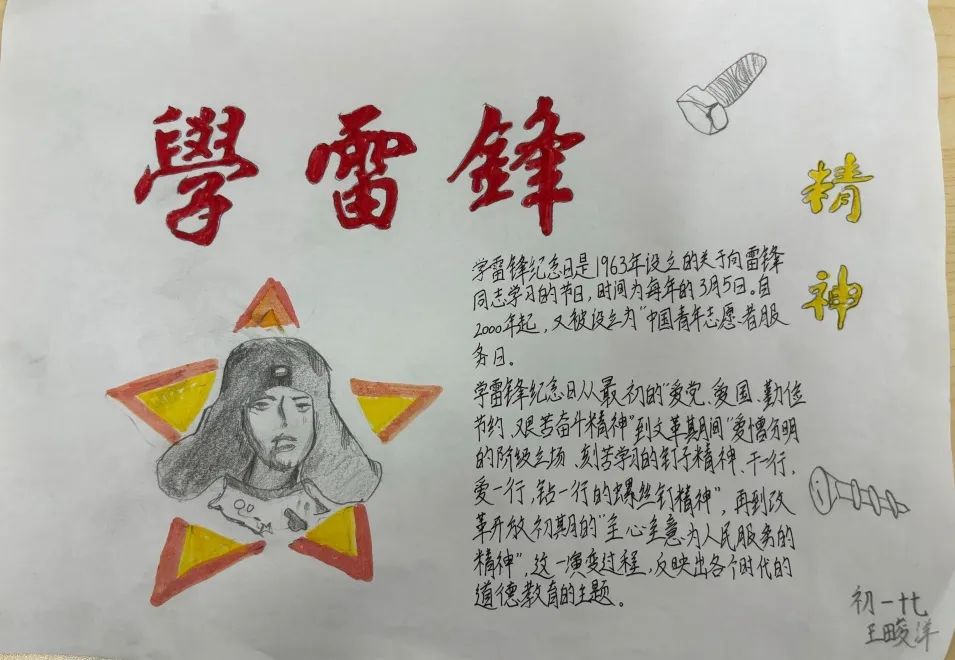 學雷鋒
精神
学雷锋纪念日是1963年设立的关于向雷锋
同志学习的节日,时间为每年的3月5日。自
2000年起,又被设立为"中国青年志愿者服
务日。
学雷锋纪念日从最初的"爱党、爱国、勤俭
节约、艰苦奋斗精神"到文革期间"爱憎分明
的阶级立场、刻苦学习的钉子精神、干一行,
爱一行,钻一行的螺丝钉精神",再到改
革开放初期的"全心全意为人民服务的
精神",这一演变过程,反映出各个时代的
道德教育的主题。
初一十七
王畯洋